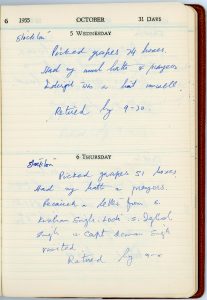 6 1955 OCTOBER 31 DAYS
5 WEDNESDAY
Stockton
Picked grapes 74 boxes.
Had my bath & prayers
Indergit was a bit unwell
Retired by 9-30.
6 THURSDAY
Stockton
Picked grapes 51 boxes
Had my bath & prayers.
Received a letter from S.
Singh S. Iqbal
Singh & Capt Singh
visited
Retired by